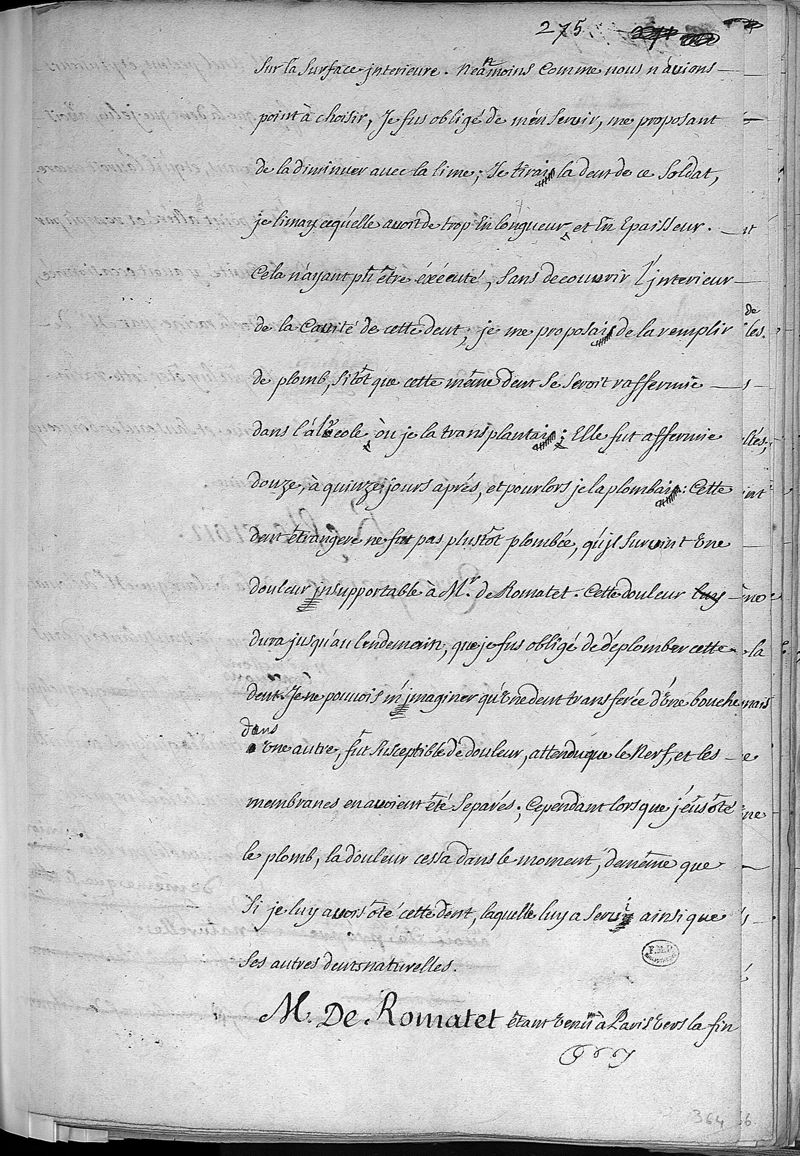 275
sur la surface jnterieure. neãmoins comme nous n'avions
point à choisir, Je fus obligé de m'en servir, me proposant
de la diminuer avec la lime; Je tirais la dent de ce Soldat,
je limay ce qu'elle avoit de trop En longueur, et En Epaisseur.
Cela n'ayant pû être éxécuté, sans decouvrir l'jnterieur
de la Cavité de cette dent, je me proposais de la remplir
de plomb, sitôt que cette même dent se seroit raffermie
dans l'álvéole, où je la transplantais; Elle fut affermie
douze, à quinze jours áprés, et pour lors je la plombais: Cette
dent étrangere ne fut pas plustôt plombée, qu'jl survint Une
douleur jnsupportable à Mr. de Romatet. Cette douleur luy
dura jusqu'au lendemain, que je fus obligé de déplomber cette
dent. Je ne pouvois m'jmaginer qu'Une dent transferée d'Une bouche
dans
Une autre, fut susceptible de douleur, attendu que le Nerf, et les
membranes en avoient été separés; Cependant lorsque j'eus ôté
le plomb, la douleur cessa dans le moment, de même que
si je luy avois ôté cette dent, laquelle luy a servi ainsi que
ses autres dents naturelles.
M. De Romatet étant Venu à Paris Vers la fin
364